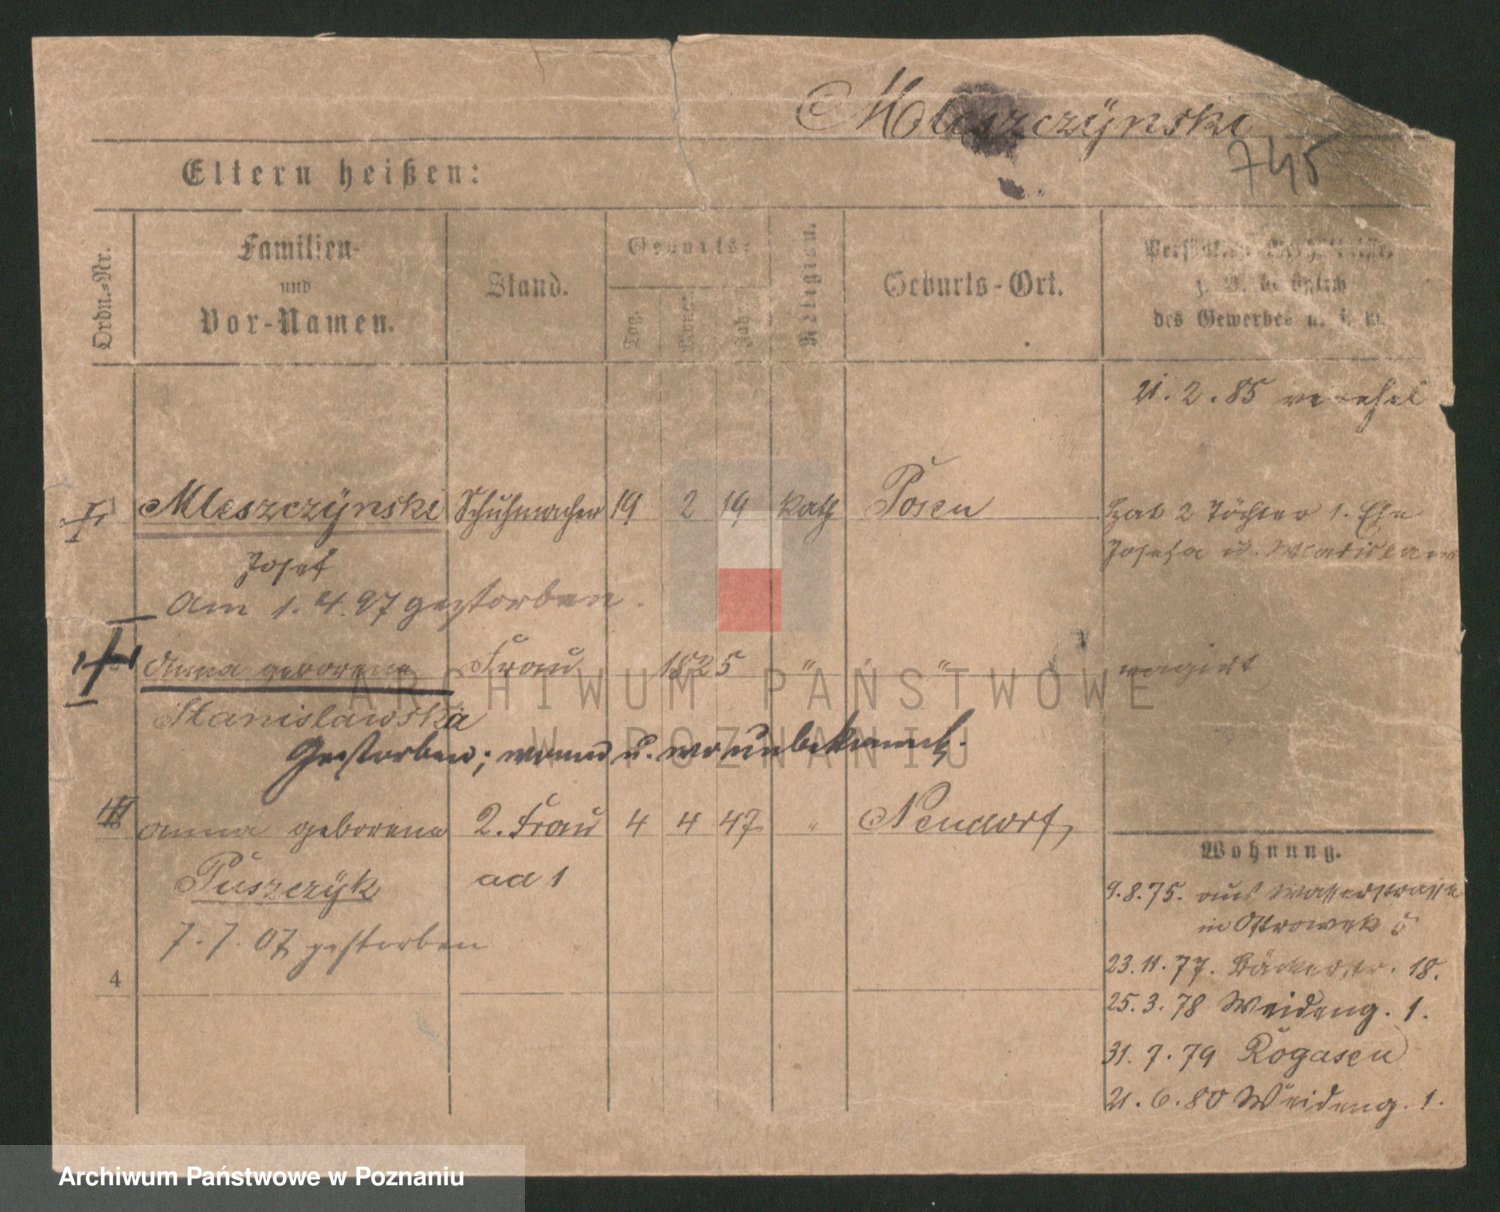 Mleszczÿnski
745
Eltern heißen:
Ordn.-Nr.
Familien-
und
Vor-Namen.
Stand.
Geburts-
Tag.
Monat
Jahr
Religion.
Geburts-Ort.
Persönliche Verhältnisse,
z. B. bezüglich
des Gewerbes u. s. w.
21. 2. 85
I Mleszczÿnski Schuhmacher 19 2 19 kath Posen
Hat 2 Töchter 1. Ehe
Josef
Josefa u.
Am 1. 4. 97 gestorben.
Anna geborene Frau 1825 " "
Stanislawska
Gestorben; wann u. wo unbekannt.
III Anna geborene 2. Frau 4 4 47 " Neudorf,
Puszczÿk ad 1
7. 7. 07 gestorben
4
Wohnung.
9. 8. 75. aus Wasserstrasse
in Ostrowek 5
23. 11. 77. Bäckerstr. 18.
25. 3. 78 Weideng. 1.
31. 7. 79 Rogasen
21. 6. 80 Weideng. 1.
ARCHIWUM PAŃSTWOWE
W POZNANIU
Archiwum Państwowe w Poznaniu